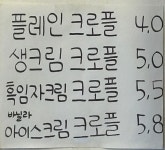 플레인 크로플 4.0
생크림 크로플 5.0
흑임자크림 크로플 5.5
바닐라
아이스크림 크로플 5.8